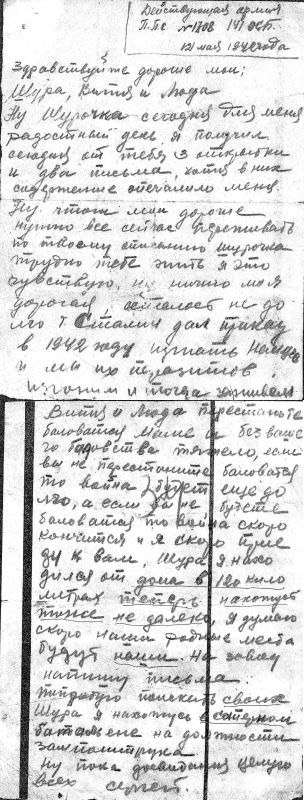 Действующая армия
П.П.С №1708 141 ОСБ.
12 мая 1942 года
Здравствуйте дорогие мои;
Шура, Витя и Люда
Ну Шурочка сегодня для меня
радостный день я получил
сегодня от тебя 3 открытки
и два письма, хотя в них
содержание опечалило меня.
Ну что ж мои дорогие
нужно все сейчас переживать
по твоему описанию Шурочка
трудно тебе жить я это
чувствую, ну ничего моя
дорогая осталось не до
лго т Сталин дал приказ
в 1942 году изгнать немцев
и мы их
изгоним и тогда заживем
Витя и Люда перестаньте
баловатся маме и без ваше
го баловства тяжело, если
вы не перестаните баловатся
то война будет еще до
лго, а если вы не будете
баловатся то война скоро
кончится и я скоро прие
ду к вам, Шура я нахо
дился от дома в 120 кило
метрах теперь нахожусь
тоже не далеко, я думаю
скоро наши родные места
будут наши. На завод
напишу письма
попробую поискать своих
Шура я нахожусь в саперном
баталионе на должности
зам политрука
Ну пока досвидания целую
всех